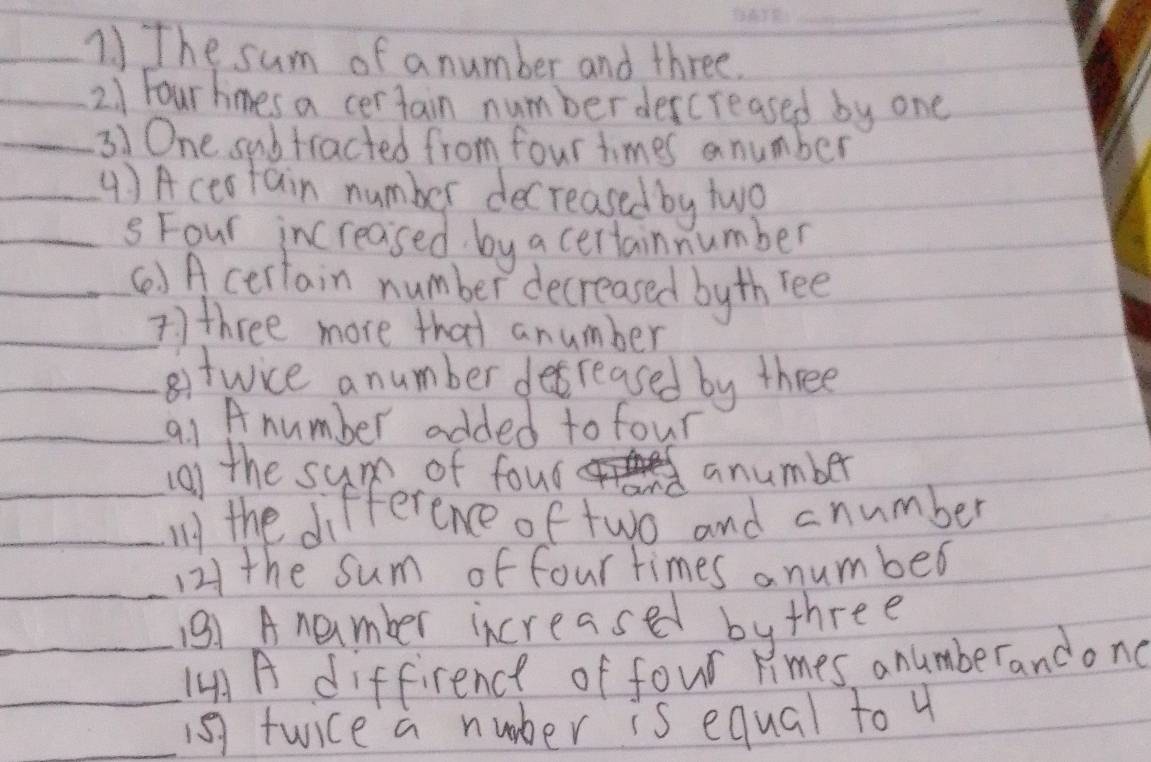 DATE:
1.) The sum of a number and three.
2) Four times a certain number descreased by one
3) One subtracted from four times a number
4.) A certain number decreased by two
5 Four increased by a certain number
6.) A certain number decreased by three
7.) three more that a number
8) twice a number decreased by three
9.) A number added to four
10) the sum of four and a number
11) the difference of two and a number
12) the sum of four times a number
13) A number increased by three
14) A diffirence of four times a number and one
15) twice a number is equal to 4